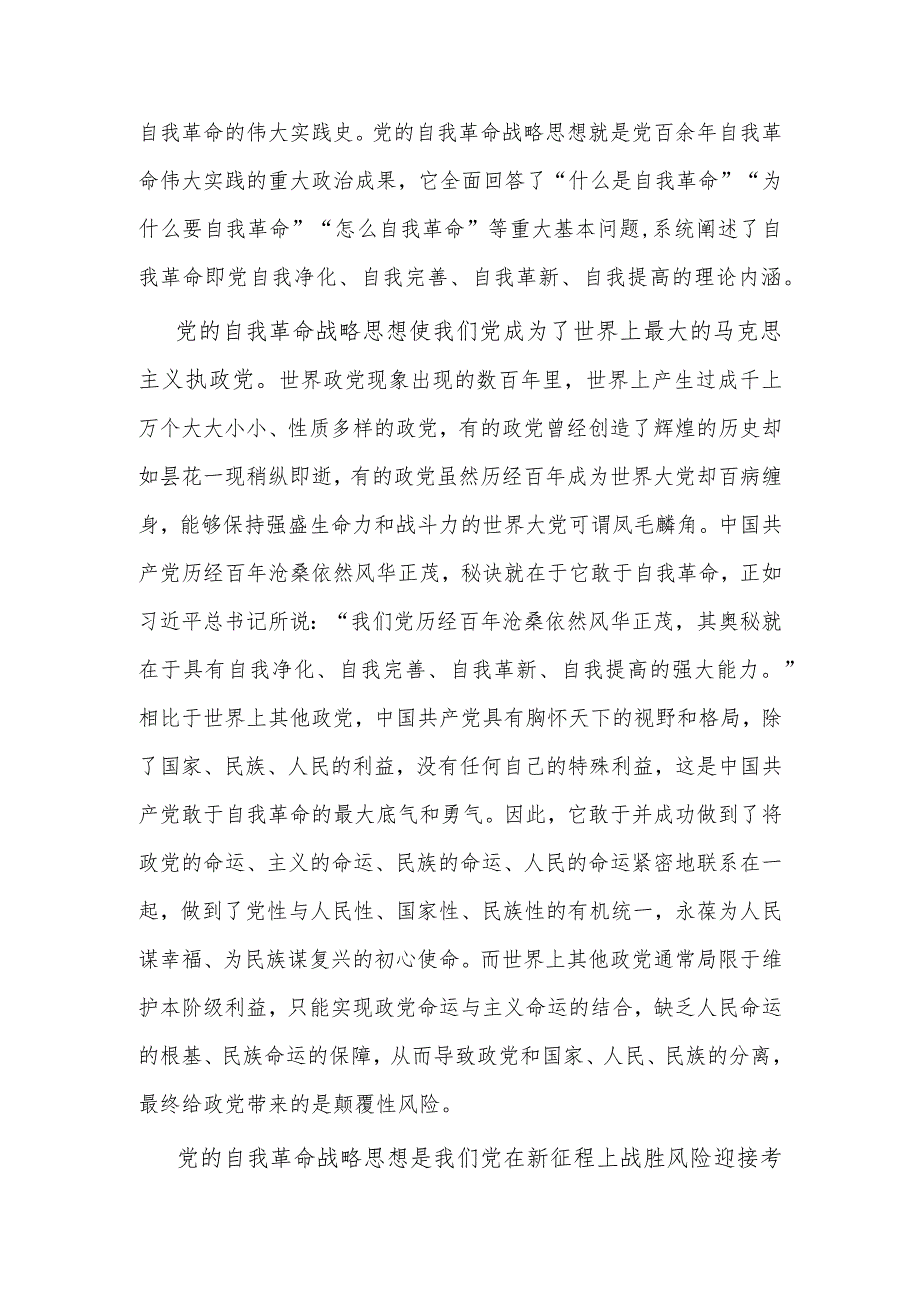 自我革命的伟大实践史。党的自我革命战略思想就是党百余年自我革
命伟大实践的重大政治成果，它全面回答了“什么是自我革命”“为
什么要自我革命”“怎么自我革命”等重大基本问题,系统阐述了自
我革命即党自我净化、自我完善、自我革新、自我提高的理论内涵。
党的自我革命战略思想使我们党成为了世界上最大的马克思
主义执政党。世界政党现象出现的数百年里，世界上产生过成千上
万个大大小小、性质多样的政党，有的政党曾经创造了辉煌的历史却
如昙花一现稍纵即逝，有的政党虽然历经百年成为世界大党却百病缠
身，能够保持强盛生命力和战斗力的世界大党可谓凤毛麟角。中国共
产党历经百年沧桑依然风华正茂，秘诀就在于它敢于自我革命，正如
习近平总书记所说：“我们党历经百年沧桑依然风华正茂，其奥秘就
在于具有自我净化、自我完善、自我革新、自我提高的强大能力。”
相比于世界上其他政党，中国共产党具有胸怀天下的视野和格局，除
了国家、民族、人民的利益，没有任何自己的特殊利益，这是中国共
产党敢于自我革命的最大底气和勇气。因此，它敢于并成功做到了将
政党的命运、主义的命运、民族的命运、人民的命运紧密地联系在一
起，做到了党性与人民性、国家性、民族性的有机统一，永葆为人民
谋幸福、为民族谋复兴的初心使命。而世界上其他政党通常局限于维
护本阶级利益，只能实现政党命运与主义命运的结合，缺乏人民命运
的根基、民族命运的保障，从而导致政党和国家、人民、民族的分离，
最终给政党带来的是颠覆性风险。
党的自我革命战略思想是我们党在新征程上战胜风险迎接考